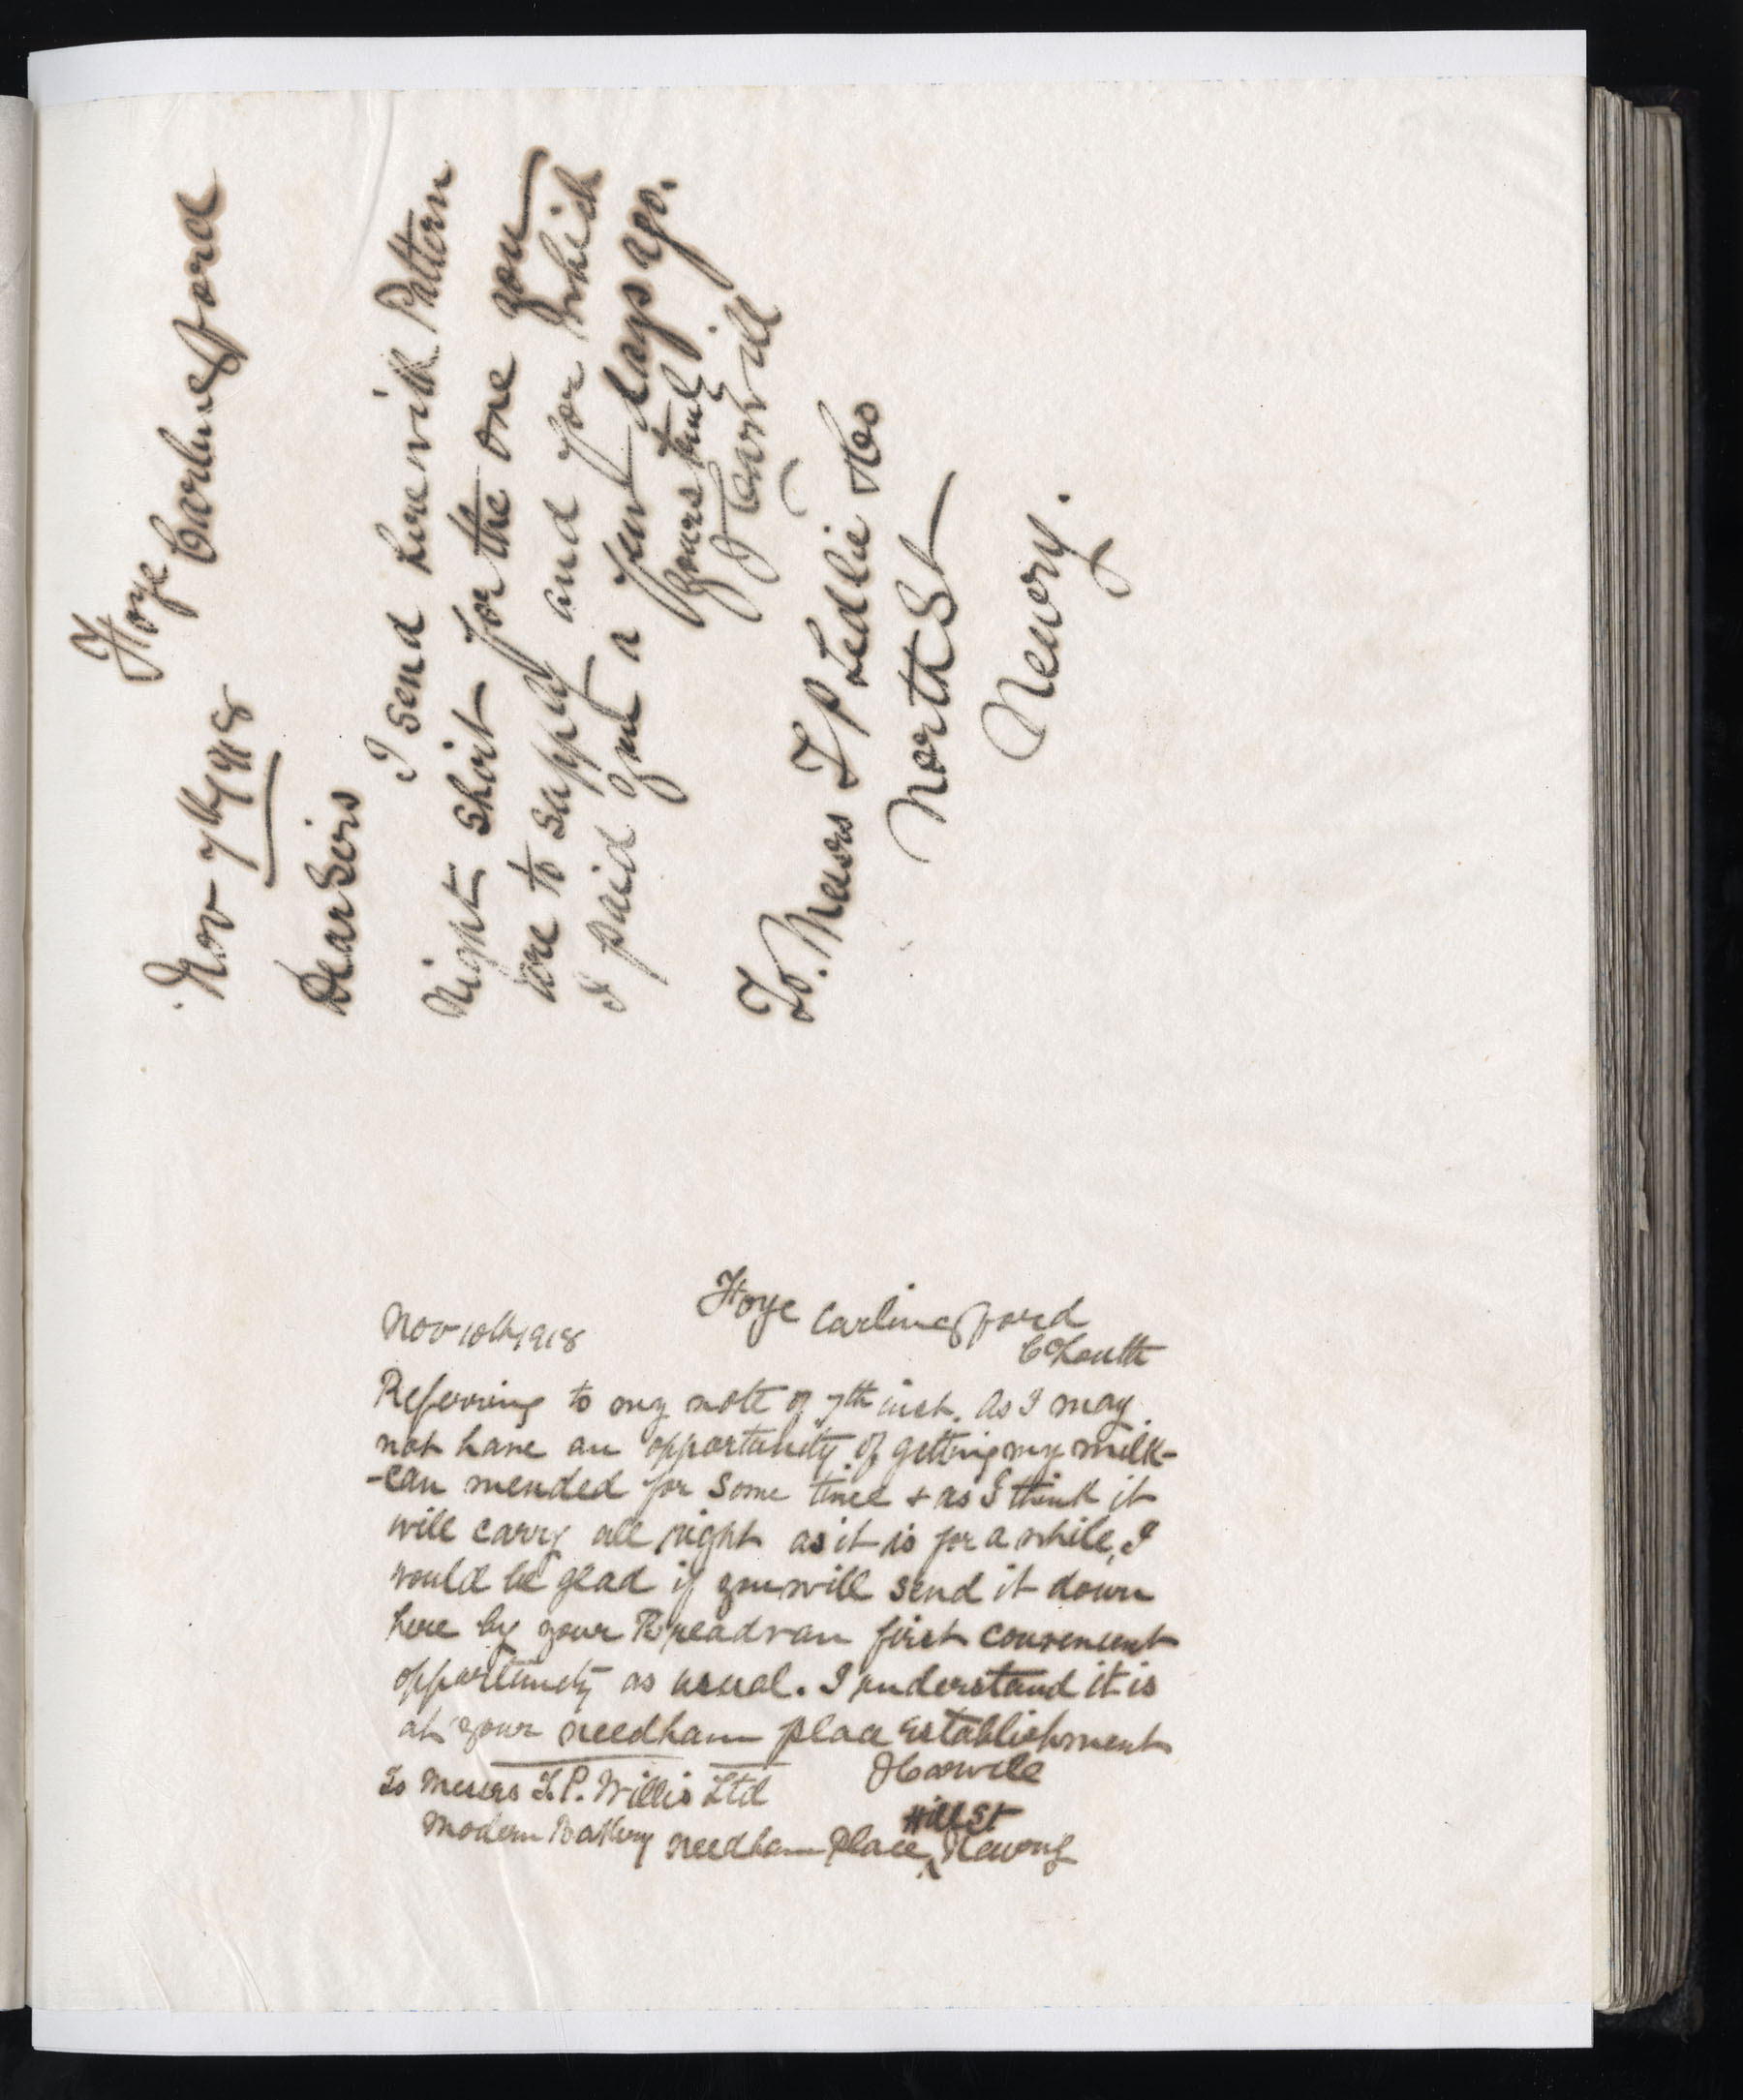 Nov 7th 1918
Hoye Carlingford
Dear Sirs
I send herewith Pattern
Night Shirt for the one you
are to supply and for which
I paid you a few days ago.
Yours truly
J Carvill
To. Messrs T P Ledlie & Co
North St
Newry.
Nov 10th 1918
Hoye Carlingford
Co Louth
Referring to my note of 7th inst. As I may
not have an opportunity of getting my milk-
-can mended for some time & as I think it
will carry all right as it is for a while, I
would be glad if you will send it down
here by your Breadvan first convenient
opportunity as usual. I understand it is
at your needham place establishment
J Carvill
To Messrs T. P. Willis Ltd
Modern Bakery needham Place, Hill St Newry